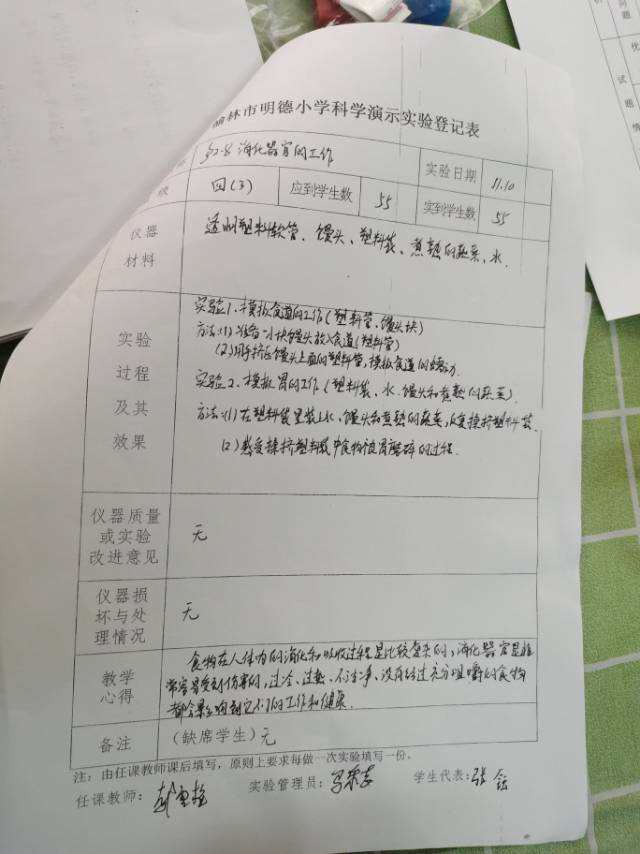 榆林市明德小学科学演示实验登记表
§2.8 消化器官的工作 实验日期 11.10
级 四(3) 应到学生数 55 实到学生数 55
仪器材料 透明塑料软管、馒头、塑料袋、煮熟的蔬菜、水.
实验过程及其效果
实验1、模拟食道的工作(塑料管、馒头块)
方法:(1)准备一小块馒头放入食道(塑料管)
(2)用手挤压馒头上面的塑料管,模拟食道的蠕动.
实验2、模拟胃的工作(塑料袋、水、馒头和煮熟的蔬菜).
方法:(1)在塑料袋里装上水、馒头和煮熟的蔬菜,反复揉挤塑料袋.
(2)感受揉挤塑料袋中食物被胃磨碎的过程.
仪器质量或实验改进意见 无
仪器损坏与处理情况 无
教学心得
食物在人体内的消化和吸收过程是比较复杂的,消化器官是非
常容易受到伤害的,过冷、过热、不洁净、没有经过充分咀嚼的食物
都会影响到它们的工作和健康.
备注 (缺席学生)无
注:由任课教师课后填写,原则上要求每做一次实验填写一份。
任课教师: 实验管理员: 学生代表:张
问题
试题
优
情